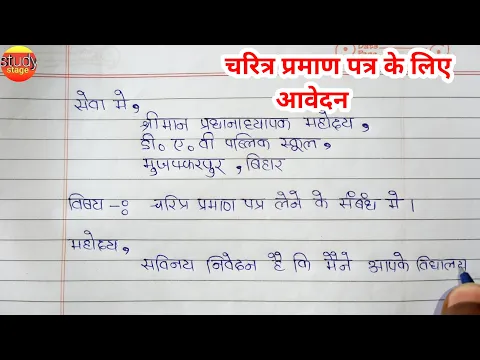 study
stage
चरित्र प्रमाण पत्र के लिए
आवेदन
सेवा में,
श्रीमान प्रधानाध्यापक महोदय,
डी० ए० वी पब्लिक स्कूल,
मुजफ्फरपुर, बिहार
विषय -: चरित्र प्रमाण पत्र लेने के संबंध में।
महोदय,
सविनय निवेदन है कि मैंने आपके विद्यालय